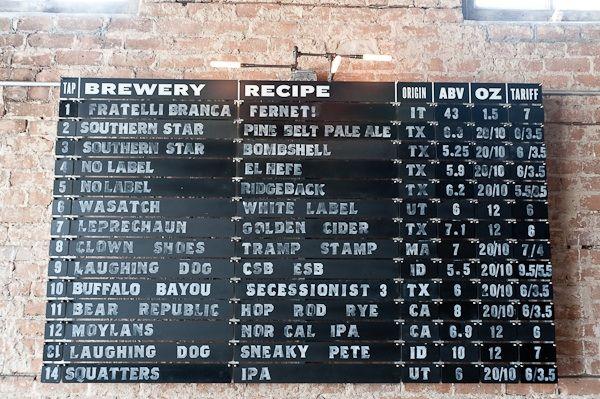 TAP BREWERY RECIPE ORIGIN ABV OZ TARIFF
1 FRATELLI BRANCA FERNET! IT 43 1.5 7
2 SOUTHERN STAR PINE BELT PALE ALE TX 6.3 20/10 6/3.5
3 SOUTHERN STAR BOMBSHELL TX 5.25 20/10 6/3.5
4 NO LABEL EL HEFE TX 5.9 20/10 6/3.5
5 NO LABEL RIDGEBACK TX 6.2 20/10 5.5/3.5
6 WASATCH WHITE LABEL UT 6 12 6
7 LEPRECHAUN GOLDEN CIDER TX 7.1 12 6
8 CLOWN SHOES TRAMP STAMP MA 7 20/10 7/4
9 LAUGHING DOG CSB ESB ID 5.5 20/10 9.5/5.5
10 BUFFALO BAYOU SECESSIONIST 3 TX 6 20/10 6/3.5
11 BEAR REPUBLIC HOP ROD RYE CA 8 20/10 6/3.5
12 MOYLANS NOR CAL IPA CA 6.9 12 6
LAUGHING DOG SNEAKY PETE ID 10 12 7
14 SQUATTERS IPA UT 6 20/10 6/3.5